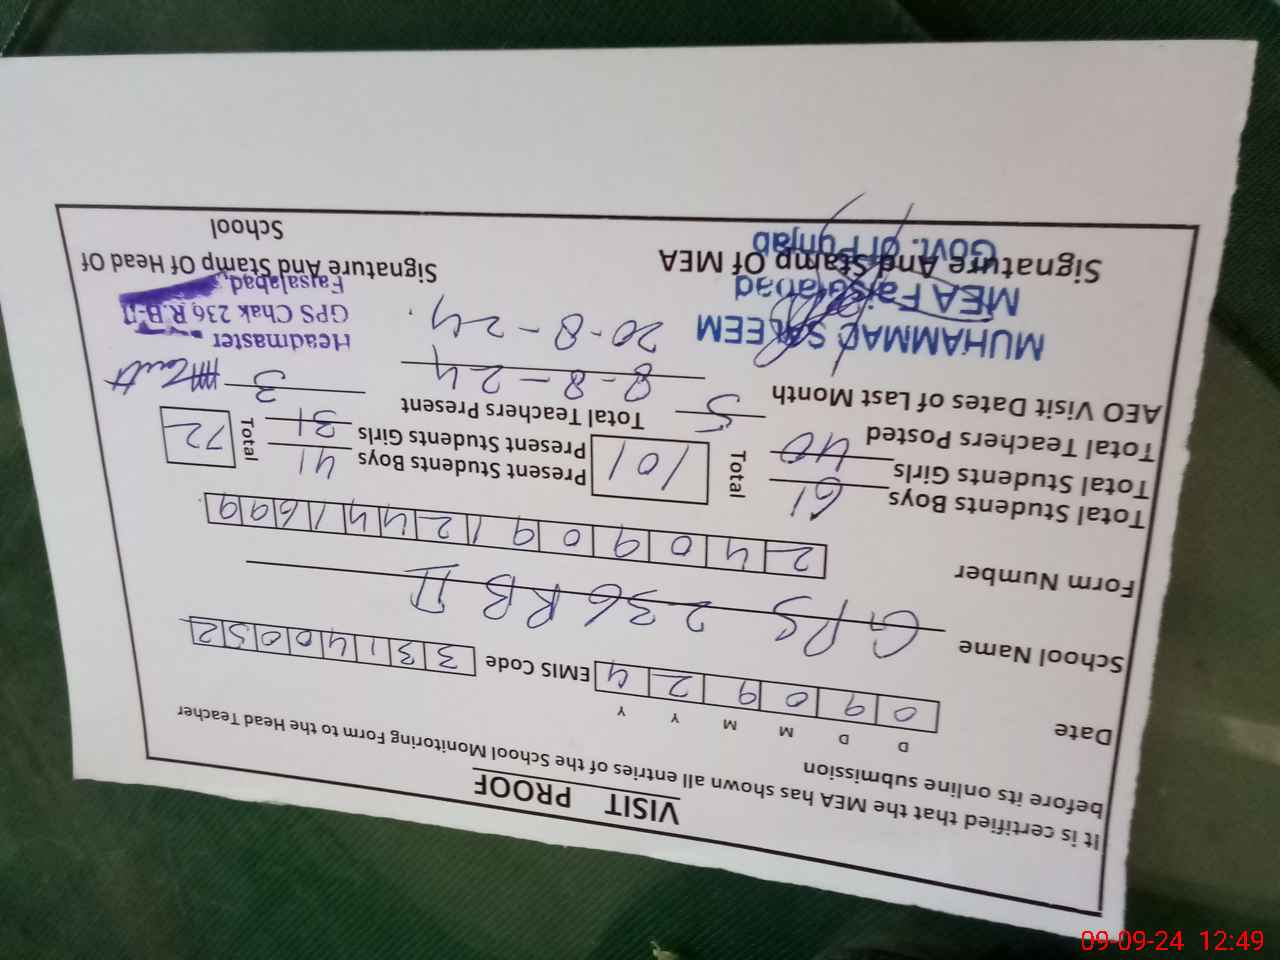 VISIT PROOF
It is certified that the MEA has shown all entries of the School Monitoring Form to the Head Teacher
before its online submission
D D M M Y Y
Date 0 9 0 9 2 4 EMIS Code 3 3 1 4 0 0 5 2
School Name GPS 236 RB II
Form Number 2 4 0 9 0 9 1 2 4 4 1 6 9 9
Total Students Boys 61 Total 101 Present Students Boys 41 Total 72
Total Students Girls 40 Present Students Girls 31
Total Teachers Posted 5 Total Teachers Present 3
AEO Visit Dates of Last Month 8-8-24
20-8-24
MUHAMMAD SALEEM
MEA Faisalabad
Govt. of Punjab
Headmaster
GPS Chak 236 R.B-II
Faisalabad.
Signature And Stamp Of MEA
Signature And Stamp Of Head Of
School
09-09-24 12:49